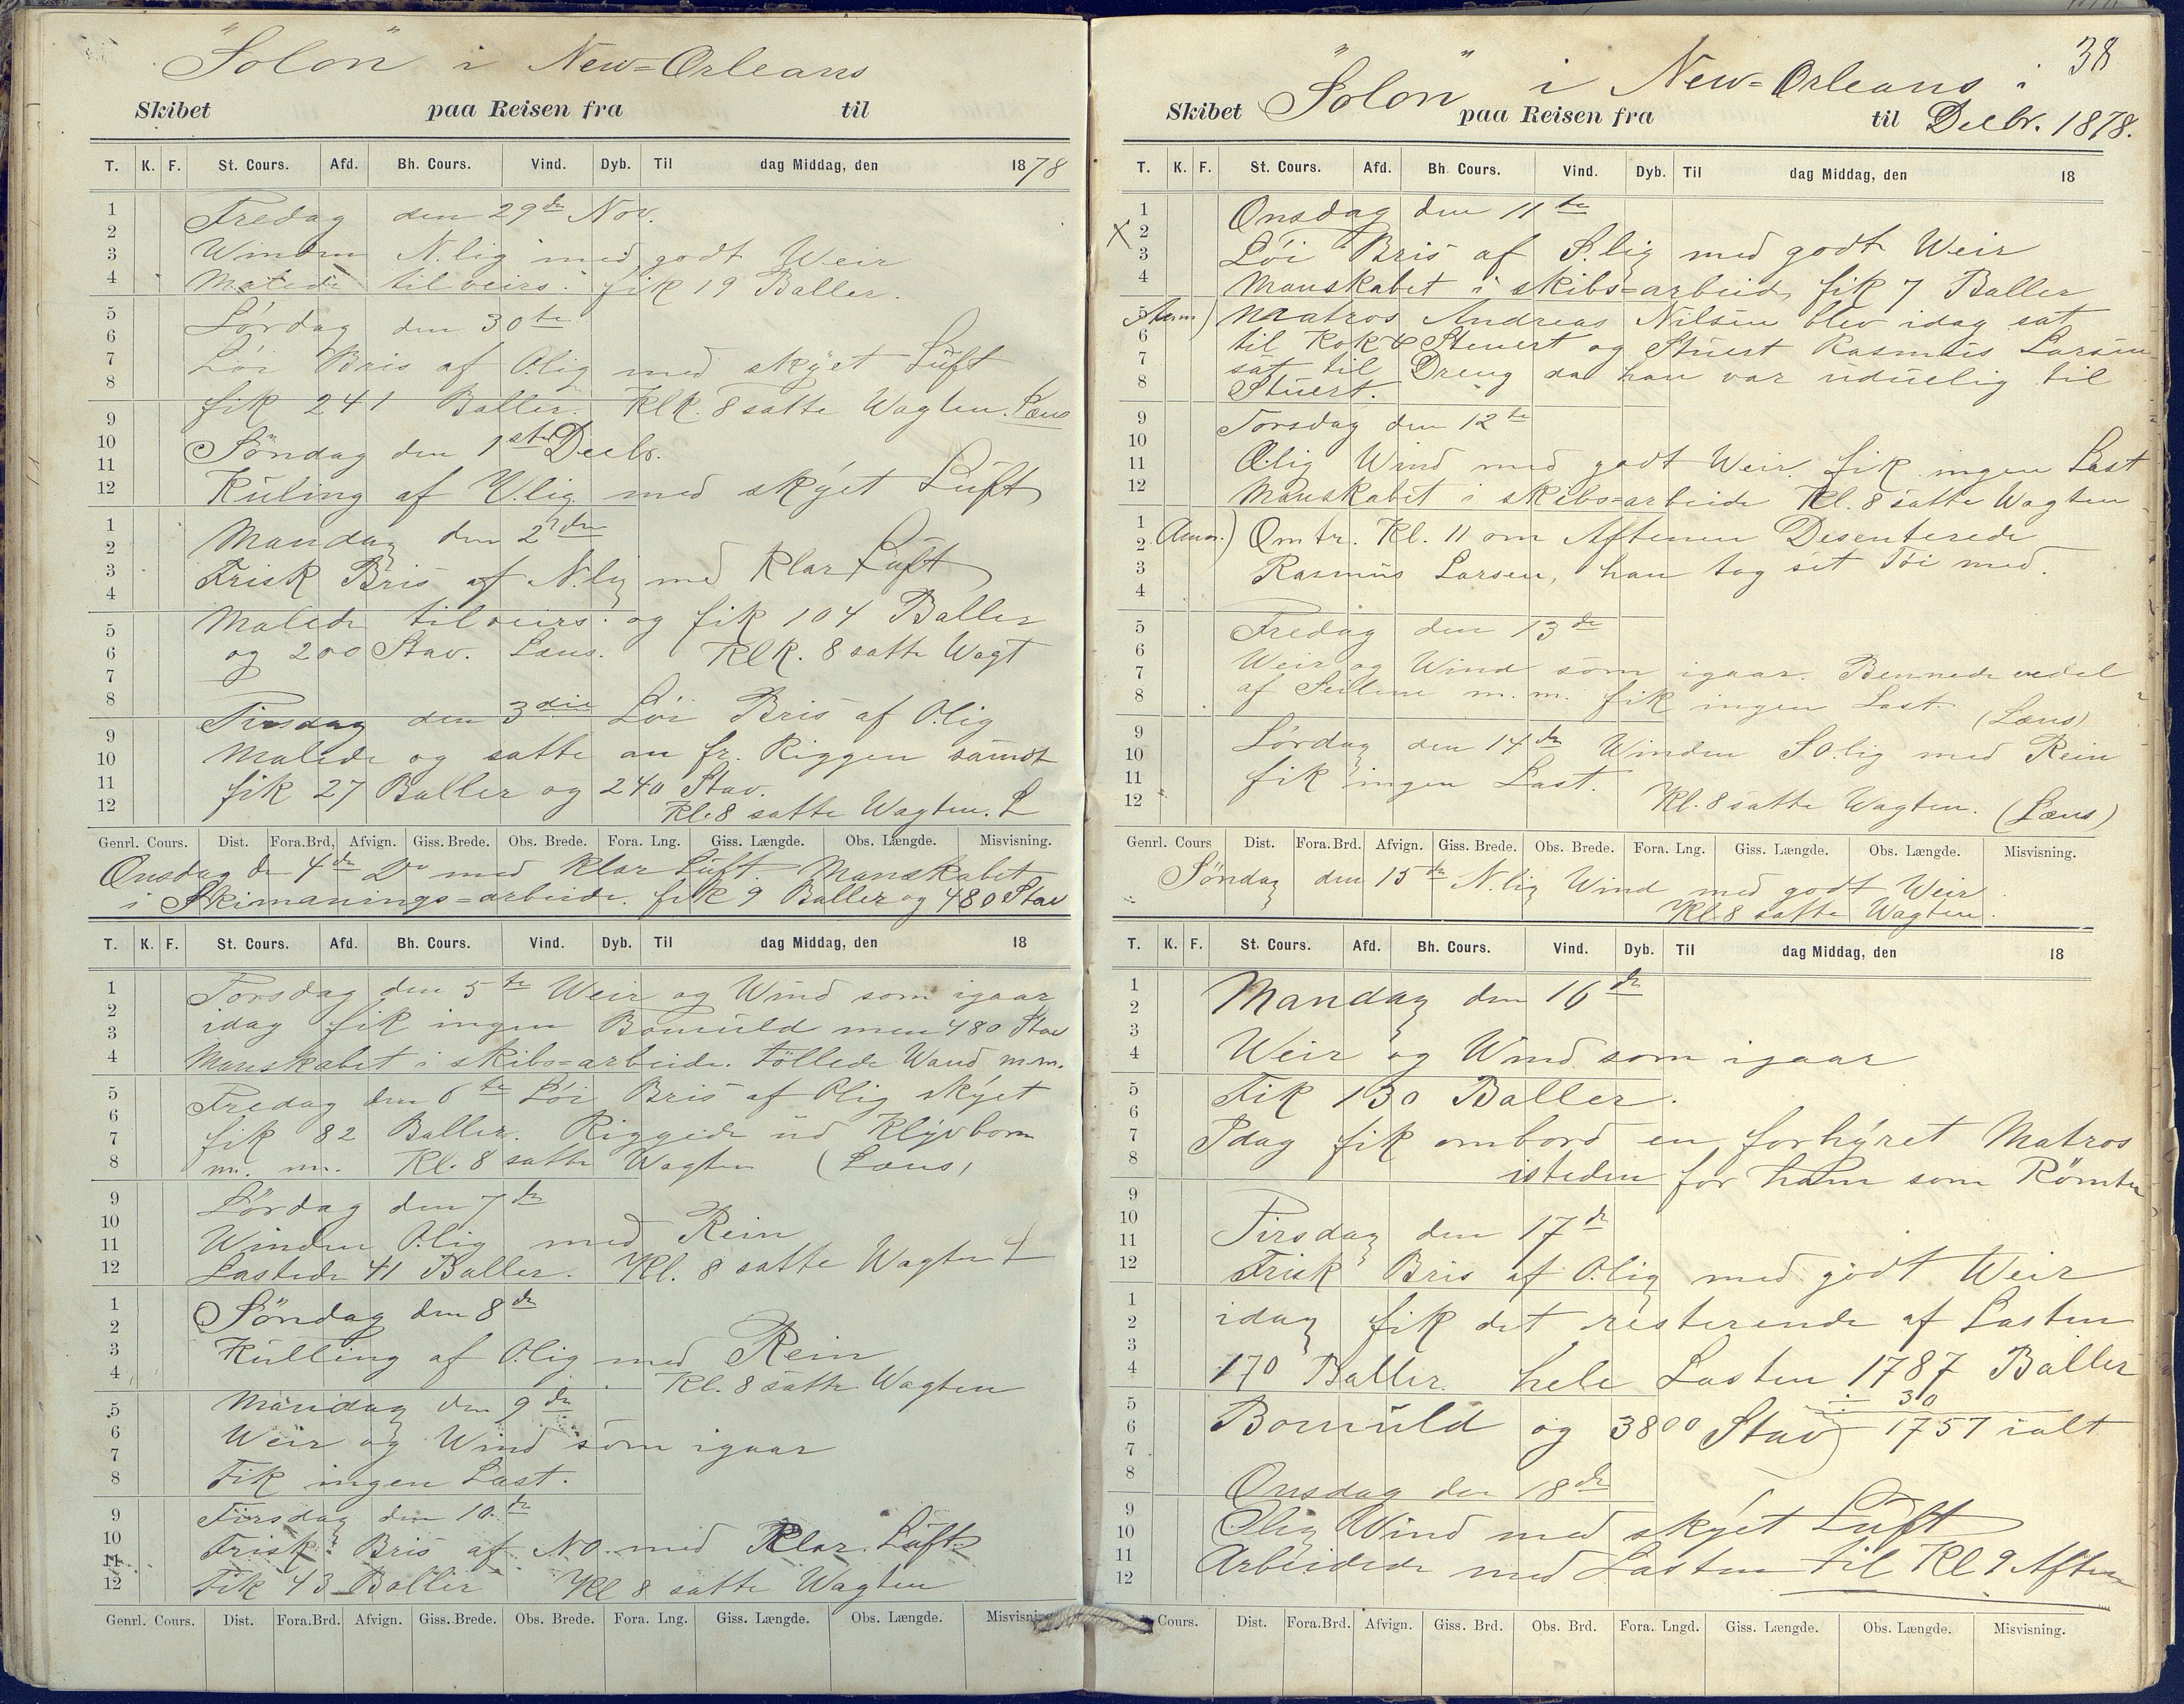 "Solon" i New=Orleans
Skibet paa Reisen fra til
T. K. F. St. Cours. Afd. Bh. Cours. Vind. Dyb. Til dag Middag, den 1878
1
2
3
4
5
6
7
8
9
10
11
12
1
2
3
4
5
6
7
8
9
10
11
12
Fredag den 29de Nov.
Winden N.lig med godt Weir
Malede tilveirs. fik 19 Baller.
Lördag den 30te
Löi Bris af O.lig med skÿet Luft
fik 241 Baller. Klk. 8 satte Wagten. Læns
Söndag den 1ste Decbr.
Kuling af V.lig med skÿet Luft
Mandag den 2den
Frisk Bris af N.lig med Klar Luft
Malede tilveirs. og fik 104 Baller
og 200 Stav. Læns. Klk. 8 satte Wagt
Tirsdag den 3die Löi Bris af O.lig
Malede og satte an fr. Riggen samdt
fik 27 Baller og 240 Stav.
Kl. 8 satte Wagten. L
Genrl. Cours. Dist. Fora.Brd. Afvign. Giss. Brede. Obs. Brede. Fora. Lng. Giss. Længde. Obs. Længde. Misvisning.
Onsdag den 4de Do med Klar Luft. Manskabet
i Skimanings=arbeide. fik 9 Baller og 480 Stav
T. K. F. St. Cours. Afd. Bh. Cours. Vind. Dyb. Til dag Middag, den 18
1
2
3
4
5
6
7
8
9
10
11
12
1
2
3
4
5
6
7
8
9
10
11
12
Torsdag den 5te Weir og Wind som igaar
idag fik ingen Bomuld men 480 Stav
Manskabet i skibs=arbeide. töllede Wand m.m.
Fredag den 6te Löi Bris af O.lig skÿet
fik 82 Baller. Riggede ud Klÿvbom
m. m. Kl. 8 satte Wagten (Læns)
Lördag den 7de
Winden O.lig med Rein
Lastede 41 Baller. Kl. 8 satte Wagten L
Söndag den 8de
Kulling af O.lig med Rein
Kl. 8 satte Wagten
Mandag den 9de
Weir og Wind som igaar
Fik ingen Last.
Tirsdag den 10de
Frisk Bris af NO. med Klar Luft
Fik 43 Baller Kl 8 satte Wagten
Genrl. Cours. Dist. Fora.Brd. Afvign. Giss. Brede. Obs. Brede. Fora. Lng. Giss. Længde. Obs. Længde. Misvisning
38
"Solon" i New=Orleans i
Skibet paa Reisen fra til Decbr. 1878.
T. K. F. St. Cours. Afd. Bh. Cours. Vind. Dyb. Til dag Middag, den 18
1
2
3
4
5
6
7
8
9
10
11
12
1
2
3
4
5
6
7
8
9
10
11
12
Onsdag den 11te
X Löi Bris af S.lig med godt Weir
Manskabet i skibs=arbeide fik 7 Baller
Anm) Matros Andreas Nilsen blev idag sat
til Kok & Stuert og Stuert Rasmus Larsen
sat til Dreng da han var uduelig til
Stuert.
Torsdag den 12te
O.lig Wind med godt Weir. fik ingen Last
Manskabet i skibs=arbeide Kl. 8 satte Wagten
Anm.) Omtr. Kl. 11 om Aftenen Desenterede
Rasmus Larsen, han tog sit Töi med.
Fredag den 13de
Weir og Wind som igaar. Bennede vedel
af Seilene m.m. fik ingen Last (Læns)
Lördag den 14de Winden SO.lig med Rein
fik ingen Last.
Kl. 8 satte Wagten. (Læns)
Genrl. Cours Dist. Fora.Brd. Afvign. Giss. Brede. Obs. Brede. Fora. Lng. Giss. Længde. Obs. Længde. Misvisning.
Söndag den 15de N.lig Wind med godt Weir
Kl. 8 satte Wagten.
T. K. F. St. Cours. Afd. Bh. Cours. Vind. Dyb. Til dag Middag, den 18
1
2
3
4
5
6
7
8
9
10
11
12
1
2
3
4
5
6
7
8
9
10
11
12
Mandag den 16de
Weir og Wind som igaar
Fik 130 Baller.
Idag fik ombord en forhÿret Matros
isteden for ham som Römte
Tirsdag den 17de
Frisk Bris af O.lig med godt Weir
idag fik det resterende af Lasten
170 Baller. hele Lasten 1787 Baller
30
Bomuld og 3800 Stav) 1757 ialt
Onsdag den 18de
O.lig Wind med skÿet Luft
Arbeidede med Lasten til Kl 9 Aften
Cours. Dist. Fora.Brd. Afvign. Giss. Brd. Obs. Brd. Fora. Lngd. Giss. Længde. Obs. Længde. Misvisning.